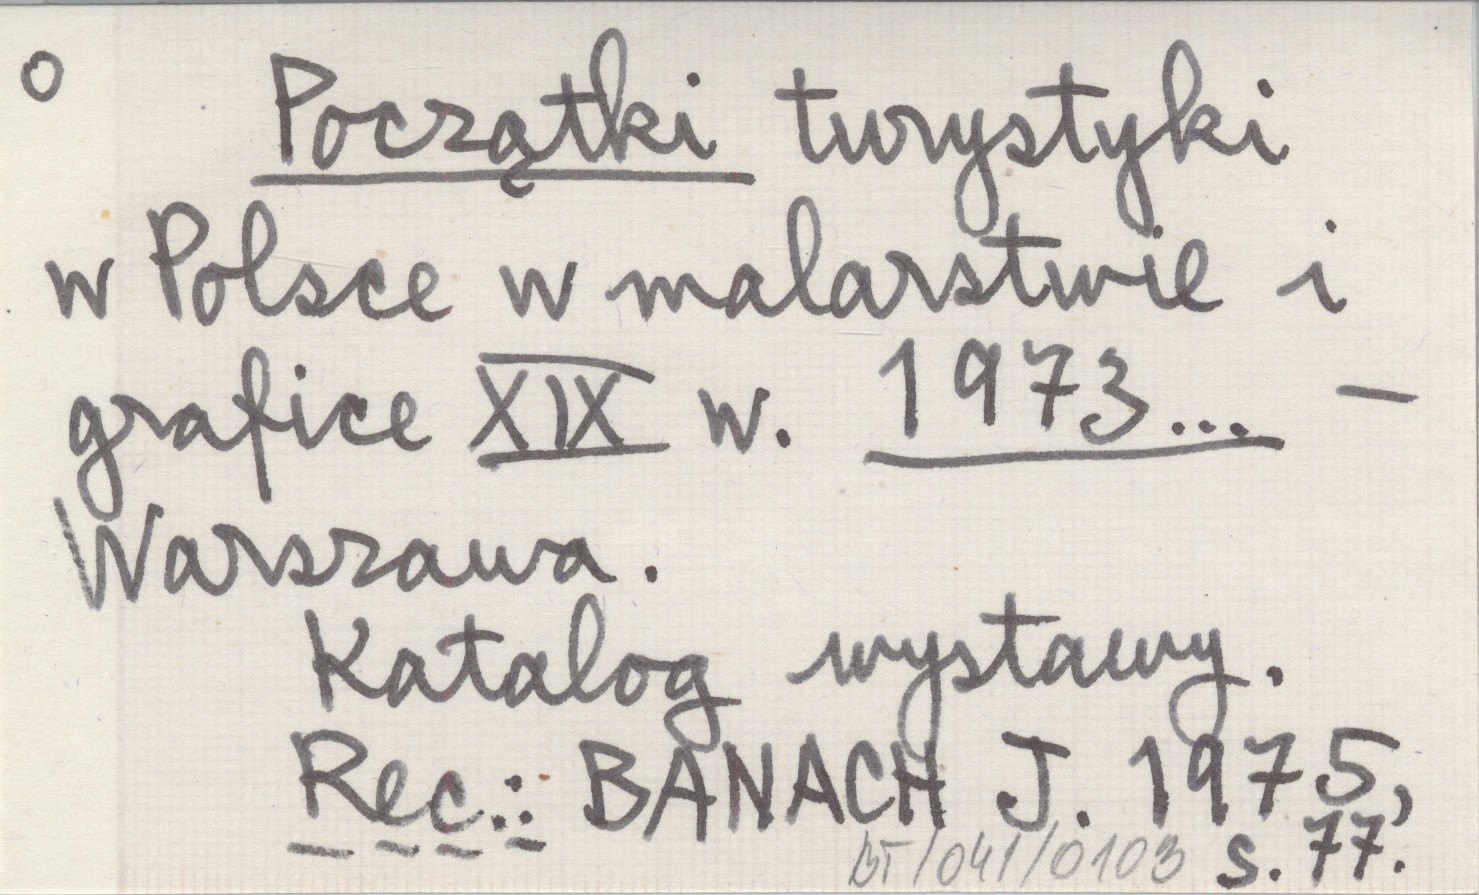 o
Początki turystyki
w Polsce w malarstwie i
grafice XIX w. 1973... –
Warszawa.
Katalog wystawy.
Rec.: BANACH J. 1975,
s. 77.
BT/041/0103